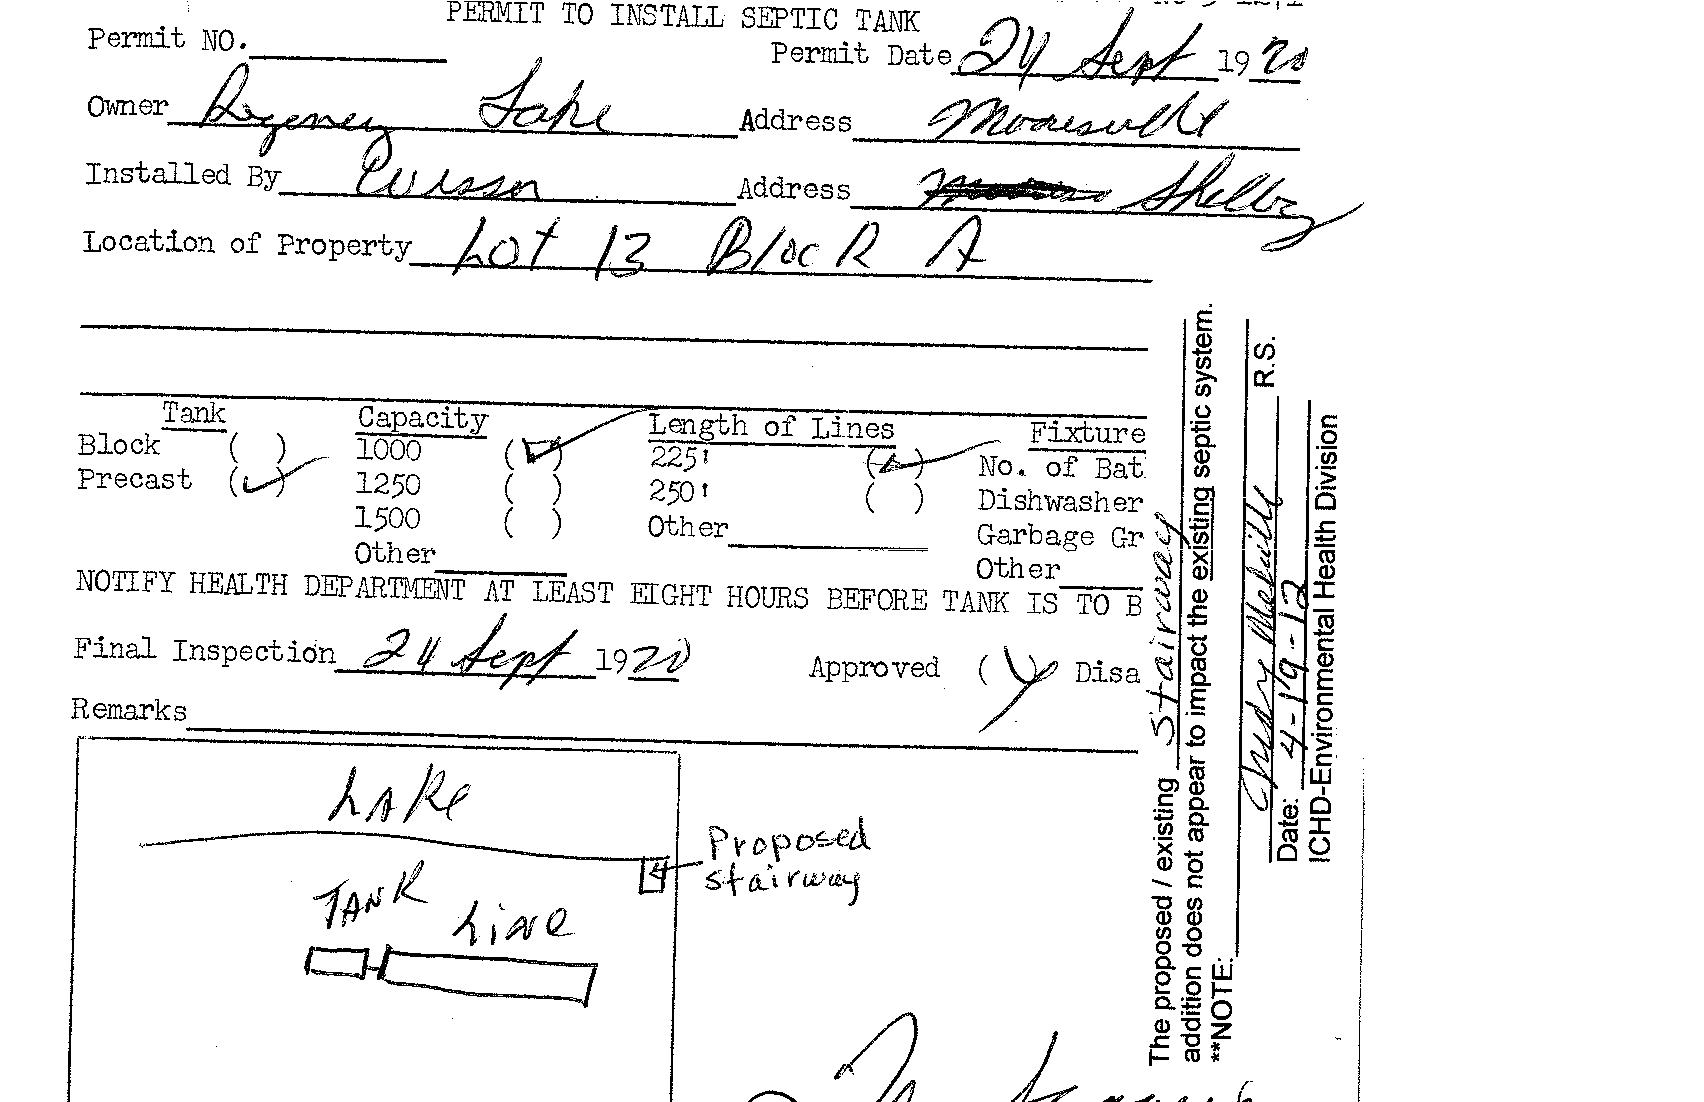 PERMIT TO INSTALL SEPTIC TANK
Permit NO. Permit Date 24 Sept 1970
Owner Regency Lake Address Mooresville
Installed By Address Shelby
Location of Property Lot 13 Block A
Tank Capacity Length of Lines Fixture
Block ( ) 1000 ( ) 225' ( ) No. of Bat
Precast ( ) 1250 ( ) 250' ( ) Dishwasher
1500 ( ) Other Garbage Gr
Other Other
NOTIFY HEALTH DEPARTMENT AT LEAST EIGHT HOURS BEFORE TANK IS TO B
Final Inspection 24 Sept 1970 Approved ( ) Disa
Remarks
LAKE
Proposed
stairway
TANK
LINE
The proposed / existing stairway
addition does not appear to impact the existing septic system.
**NOTE:
R.S.
Date: 4-19-12
ICHD-Environmental Health Division